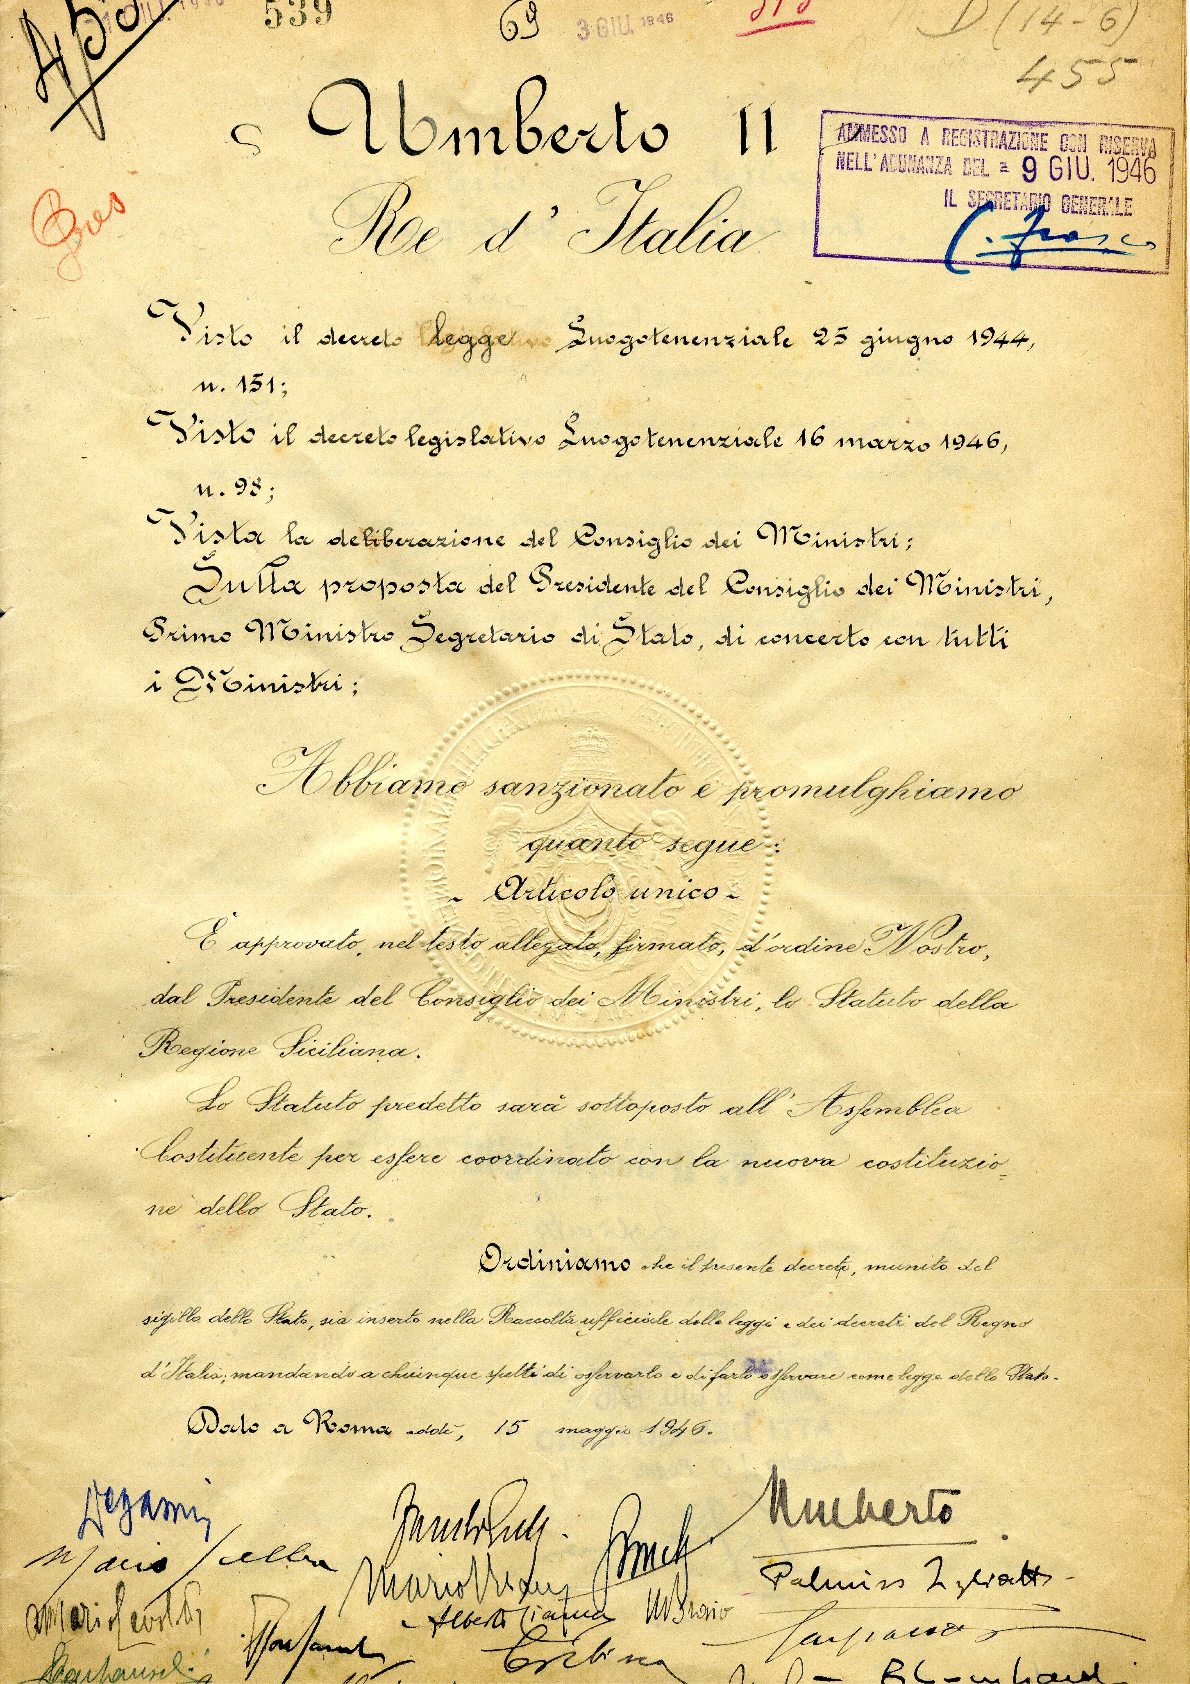 455
539
69
3 GIU. 1946
D (14-6)
455
Umberto II
Re d'Italia
AMMESSO A REGISTRAZIONE CON RISERVA
NELL'ADUNANZA DEL = 9 GIU. 1946
IL SEGRETARIO GENERALE
Visto il decreto legge Luogotenenziale 25 giugno 1944,
n. 151;
Visto il decreto legislativo Luogotenenziale 16 marzo 1946,
n. 98;
Vista la deliberazione del Consiglio dei Ministri;
Sulla proposta del Presidente del Consiglio dei Ministri,
Primo Ministro Segretario di Stato, di concerto con tutti
i Ministri;
Abbiamo sanzionato e promulghiamo
quanto segue:
- Articolo unico -
È approvato, nel testo allegato, firmato, d'ordine Nostro,
dal Presidente del Consiglio dei Ministri, lo Statuto della
Regione Siciliana.
Lo Statuto predetto sarà sottoposto all'Assemblea
Costituente per essere coordinato con la nuova costituzio=
ne dello Stato.
Ordiniamo che il presente decreto, munito del
sigillo dello Stato, sia inserto nella Raccolta ufficiale delle leggi e dei decreti del Regno
d'Italia, mandando a chiunque spetti di osservarlo e di farlo osservare come legge dello Stato.
Dato a Roma addì, 15 maggio 1946.
Degasperi
Umberto
Mario Scelba
Palmiro Togliatti
Alberto Cianca